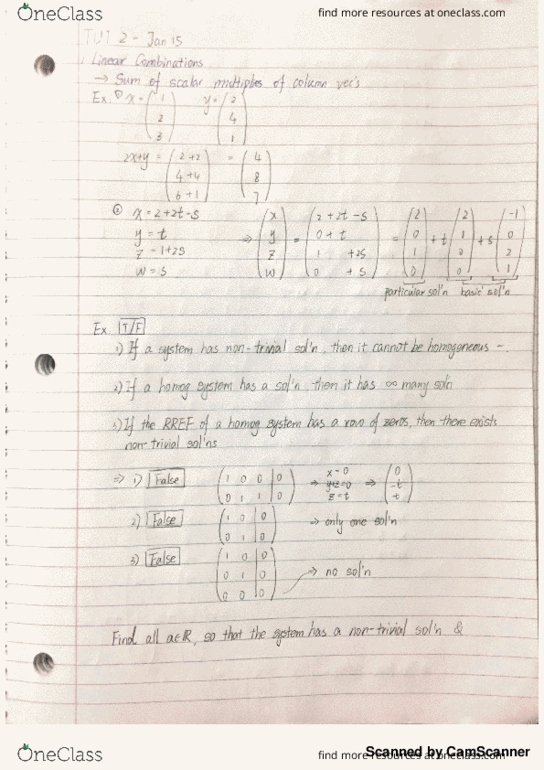 OneClass
find more resources at oneclass.com
TUT 2 - Jan 15
Linear Combinations
→ Sum of scalar multiples of column vec's
Ex. ① x = (1 y = (2
2 4
3) 1)
2x+y = (2+2 = (4
4+4 8
6+1) 7)
② x = 2+2t-s (x (2+2t-s (2 (2 (-1
y = t ⇒ y = 0+t = 0 + t 1 + s 0
z = 1+2s z 1 +2s 1 0 2
w = s w) 0 +s) 0) 0) 1)
particular sol'n basic sol'n
Ex. T/F
1) If a system has non-trivial sol'n, then it cannot be homogeneous -
2) If a homog system has a sol'n then it has ∞ many soln
3) If the RREF of a homog system has a row of zeros, then there exists
non-trivial sol'ns
⇒ 1) False (1 0 0 | 0 → x=0 ⇒ (0
0 1 1 | 0) y+z=0 -t
z=t t)
2) False (1 0 | 0 → only one sol'n
0 1 | 0)
3) False (1 0 | 0
0 1 | 0 → no sol'n
0 0 | 0)
Find all a∈R, so that the system has a non-trivial sol'n &
OneClass
find more resources at oneclass.com
Scanned by CamScanner